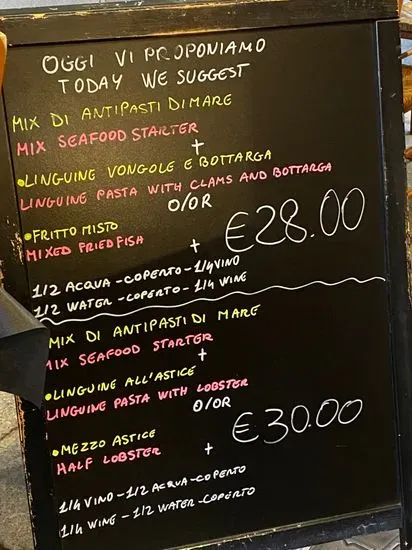 OGGI VI PROPONIAMO
TODAY WE SUGGEST
MIX DI ANTIPASTI DI MARE
MIX SEAFOOD STARTER
+
•LINGUINE VONGOLE E BOTTARGA
LINGUINE PASTA WITH CLAMS AND BOTTARGA
O/OR
•FRITTO MISTO
MIXED FRIED FISH
+
€28.00
1/2 ACQUA-COPERTO-1/4 VINO
1/2 WATER-COPERTO-1/4 WINE
MIX DI ANTIPASTI DI MARE
MIX SEAFOOD STARTER
+
•LINGUINE ALL'ASTICE
LINGUINE PASTA WITH LOBSTER
O/OR
•MEZZO ASTICE
HALF LOBSTER
+
€30.00
1/4 VINO-1/2 ACQUA-COPERTO
1/4 WINE-1/2 WATER-COPERTO